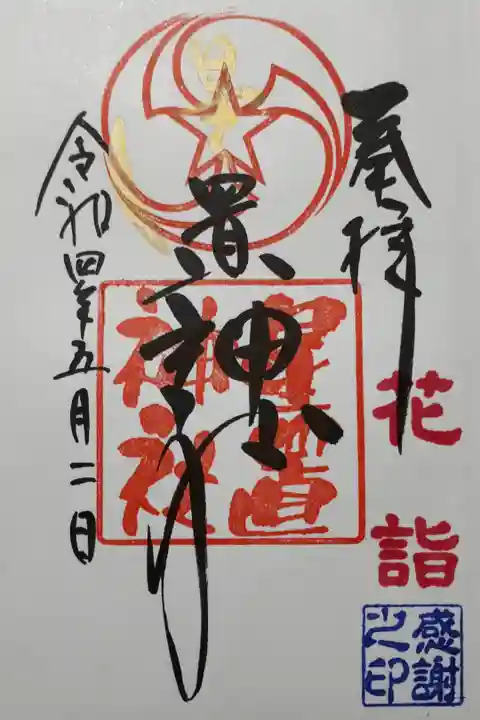 奉拝
花詣
感謝之印
星置神社
星置神社
令和四年五月二日